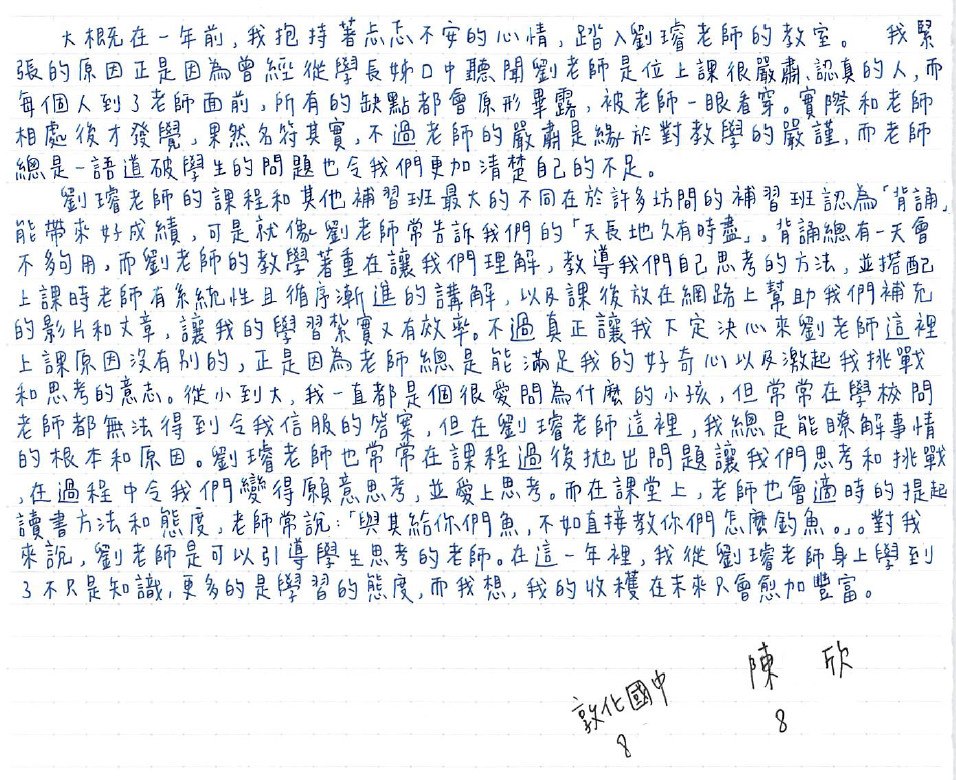 大概在一年前,我抱持著忐忑不安的心情,踏入劉璿老師的教室。 我緊
張的原因正是因為曾經從學長姊口中聽聞劉老師是位上課很嚴肅、認真的人,而
每個人到了老師面前,所有的缺點都會原形畢露,被老師一眼看穿。實際和老師
相處後才發覺,果然名符其實,不過老師的嚴肅是緣於對教學的嚴謹,而老師
總是一語道破學生的問題也令我們更加清楚自己的不足。
劉璿老師的課程和其他補習班最大的不同在於許多坊間的補習班認為「背誦」
能帶來好成績,可是就像劉老師常告訴我們的「天長地久有時盡」,背誦總有一天會
不夠用,而劉老師的教學著重在讓我們理解,教導我們自己思考的方法,並搭配
上課時老師有系統性且循序漸進的講解,以及課後放在網路上幫助我們補充
的影片和文章,讓我的學習紮實又有效率。不過真正讓我下定決心來劉老師這裡
上課原因沒有別的,正是因為老師總是能滿足我的好奇心以及激起我挑戰
和思考的意志。從小到大,我一直都是個很愛問為什麼的小孩,但常常在學校問
老師都無法得到令我信服的答案,但在劉璿老師這裡,我總是能瞭解事情
的根本和原因。劉璿老師也常常在課程過後拋出問題讓我們思考和挑戰
,在過程中令我們變得願意思考,並愛上思考。而在課堂上,老師也會適時的提起
讀書方法和態度,老師常說:「與其給你們魚,不如直接教你們怎麼釣魚。」。對我
來說,劉老師是可以引導學生思考的老師。在這一年裡,我從劉璿老師身上學到
了不只是知識,更多的是學習的態度,而我想,我的收穫在未來只會愈加豐富。
敦化國中 陳 欣
8 8